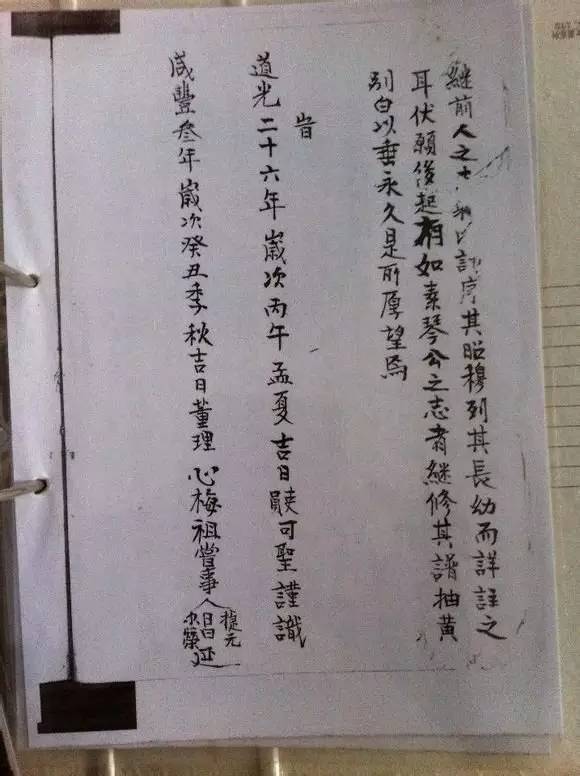 繼前人之志序其昭穆列其長幼而詳註之
耳伏願後起有如素琴公之志者繼修其譜抽黃
別白以垂永久是所厚望焉
旹
道光二十六年歲次丙午孟夏吉日可聖謹識
咸豐叁年歲次癸丑季秋吉日董理心梅祖嘗事人昌延
捷元